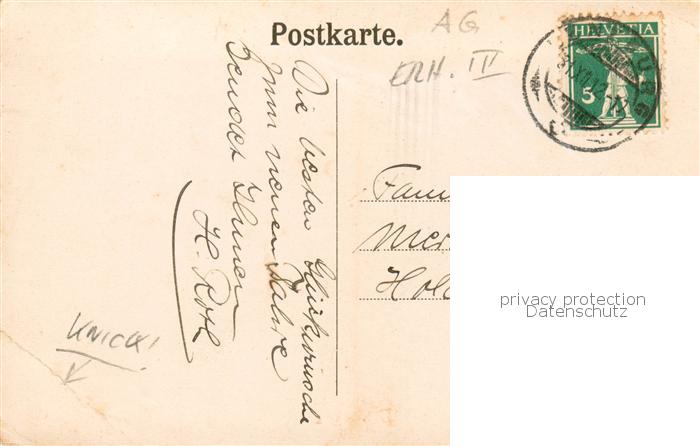 Postkarte.
AG
ERH. III
HELVETIA
5
Die besten Glückwünsche
zum neuen Jahre
sendet Ihnen
H. Roth
Fam
Mei
Hol
KNICK!
privacy protection
Datenschutz